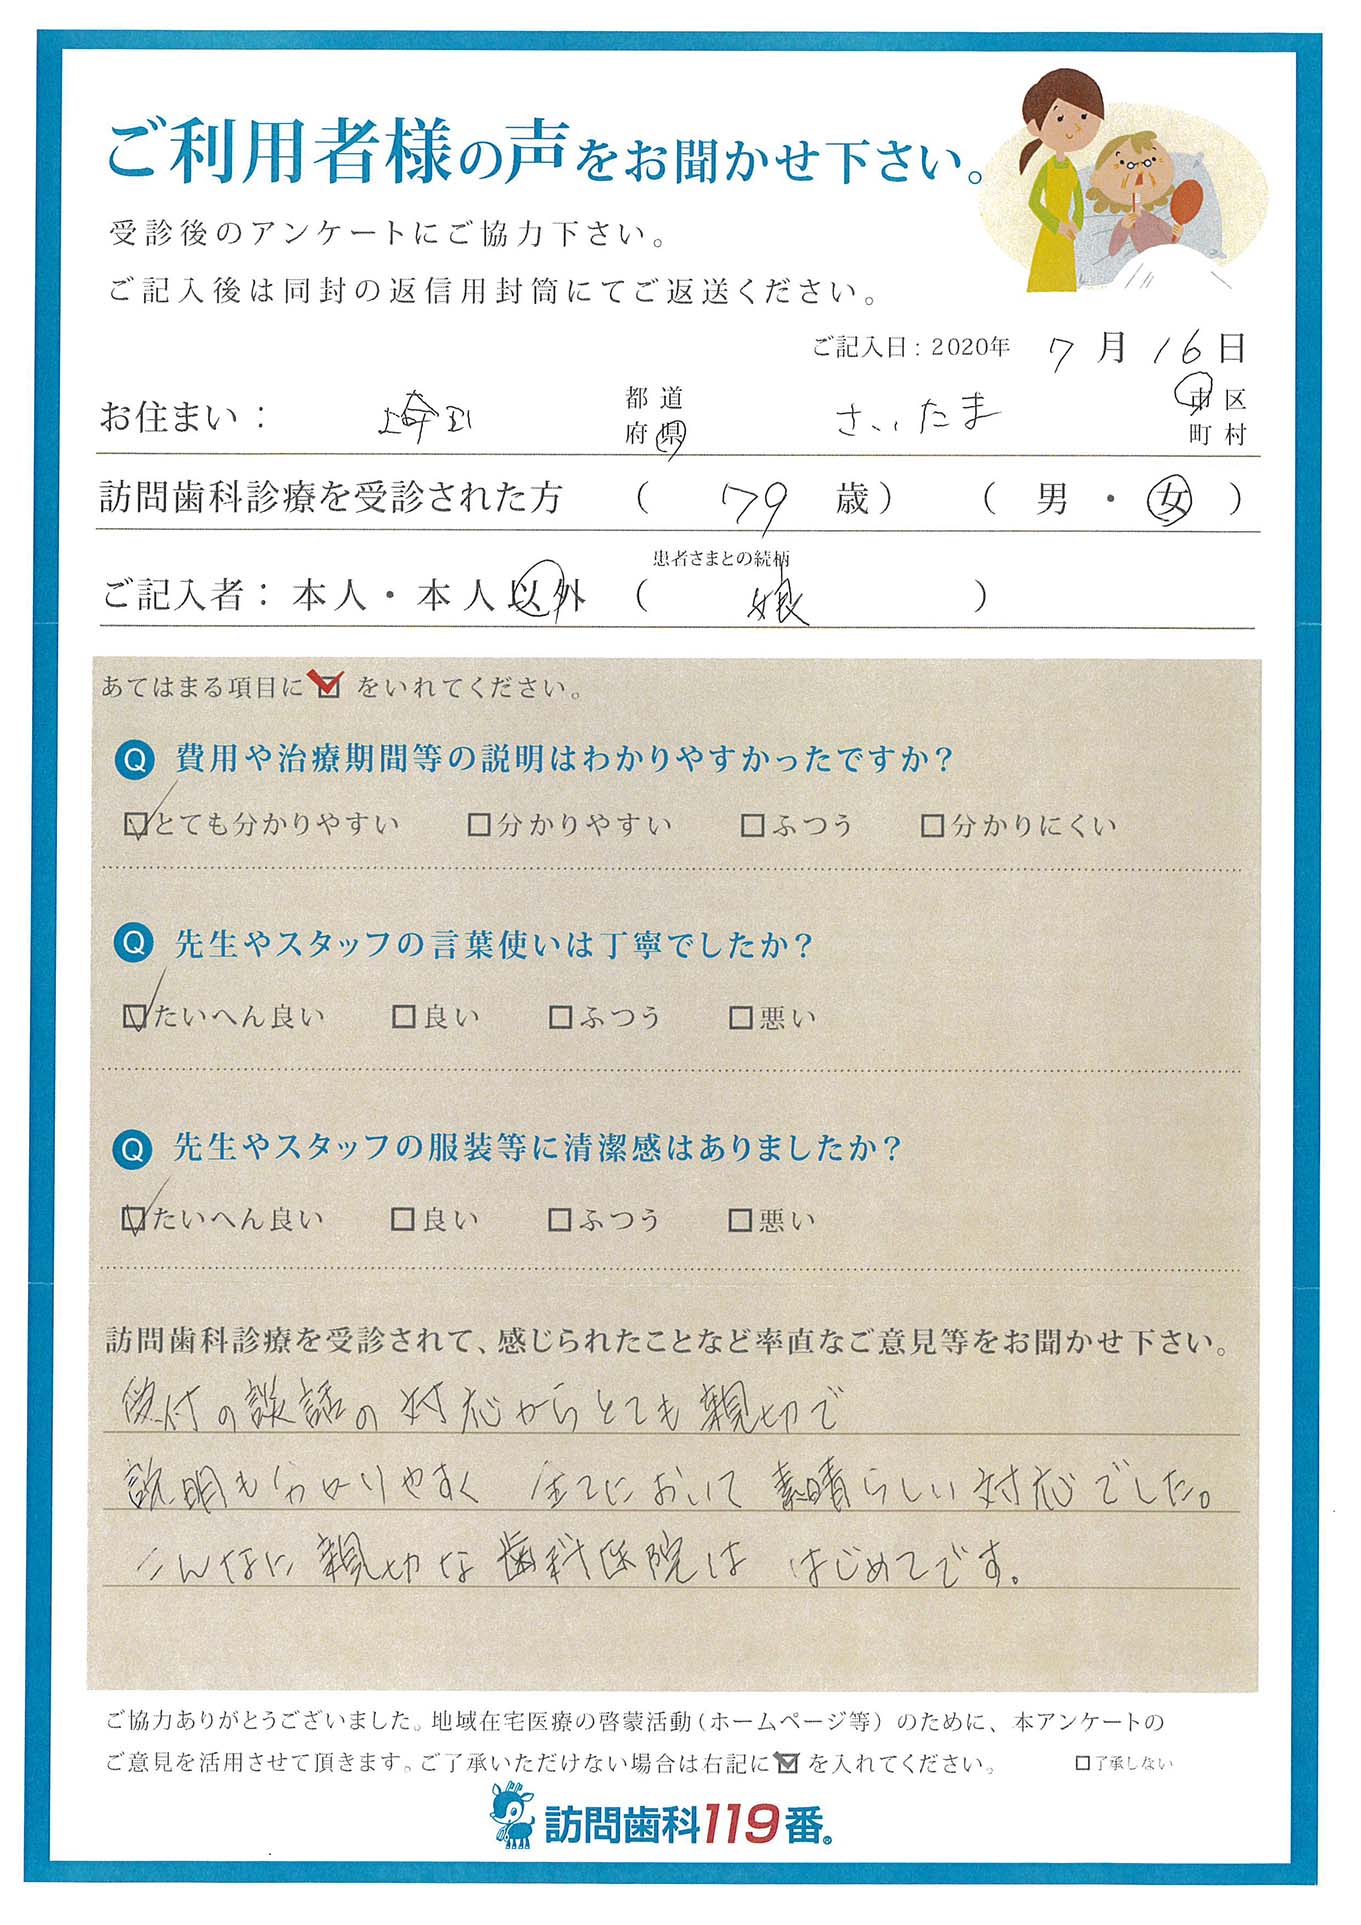 ご利用者様の声をお聞かせ下さい。
受診後のアンケートにご協力下さい。
ご記入後は同封の返信用封筒にてご返送ください。
ご記入日：2020年 7月16日
お住まい： 埼玉 都道府県 さいたま 市区町村
訪問歯科診療を受診された方 （ 79 歳） （ 男・女 ）
患者さまとの続柄
ご記入者：本人・本人以外 （ 娘 ）
あてはまる項目に☑をいれてください。
Q 費用や治療期間等の説明はわかりやすかったですか？
☑とても分かりやすい □分かりやすい □ふつう □分かりにくい
Q 先生やスタッフの言葉使いは丁寧でしたか？
☑たいへん良い □良い □ふつう □悪い
Q 先生やスタッフの服装等に清潔感はありましたか？
☑たいへん良い □良い □ふつう □悪い
訪問歯科診療を受診されて、感じられたことなど率直なご意見等をお聞かせ下さい。
受付の談話の対応からとても親切で
説明も分かりやすく 全てにおいて 素晴らしい対応でした。
こんなに親切な歯科医院は はじめてです。
ご協力ありがとうございました。地域在宅医療の啓蒙活動（ホームページ等）のために、本アンケートの
ご意見を活用させて頂きます。ご了承いただけない場合は右記に☑を入れてください。 □了承しない
訪問歯科119番®